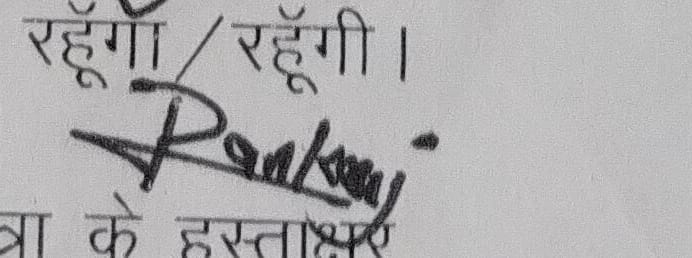 रहूँगा / रहूँगी।
Pankaj
त्रा के हस्ताक्षर